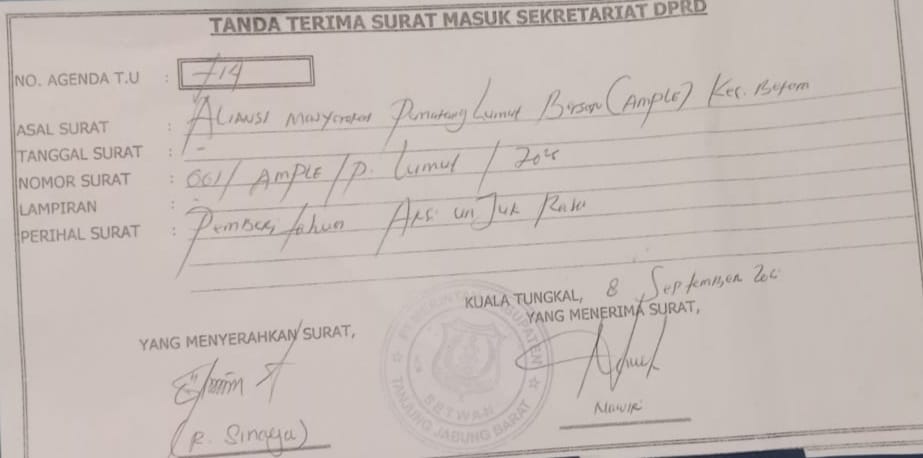 TANDA TERIMA SURAT MASUK SEKRETARIAT DPRD
NO. AGENDA T.U : 714
ASAL SURAT : Aliansi Masyarakat Pematang Lumut (AMPLE) Kec.
TANGGAL SURAT : -
NOMOR SURAT : 001/AMPLE/P. Lumut/
LAMPIRAN : -
PERIHAL SURAT : Aksi unjuk Rasa
KUALA TUNGKAL, 8 September
YANG MENYERAHKAN SURAT,
YANG MENERIMA SURAT,
(R. Sinaga)
KABUPATEN
SETWAN
TANJUNG JABUNG BARAT